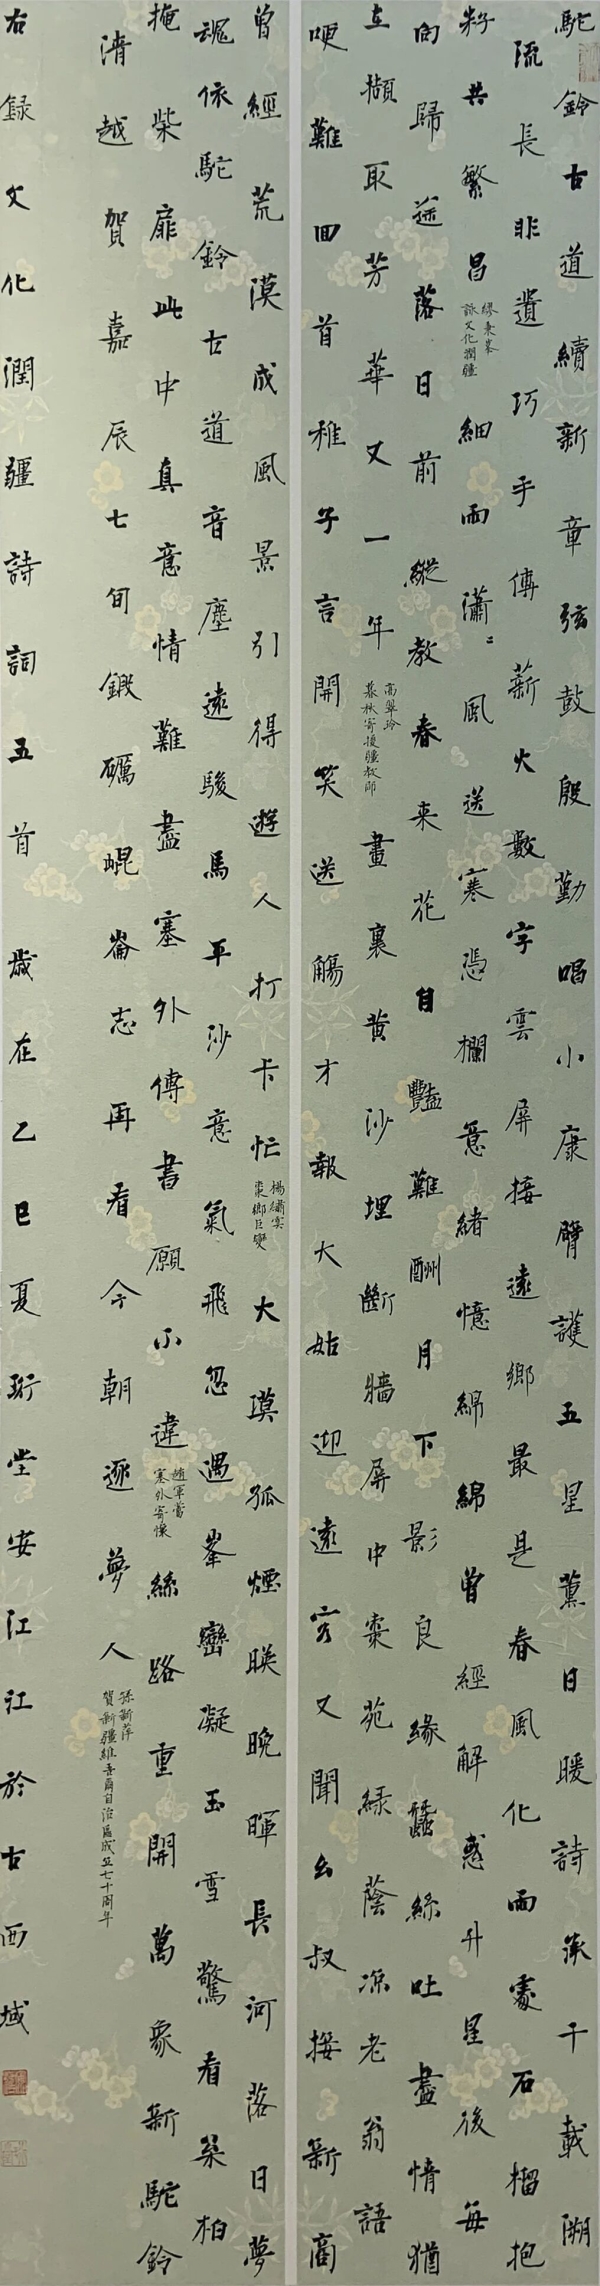 駝鈴古道續新章弦鼓殷勤唱小康臂護五星薰日暖詩承千載溯
流長非遺巧手傳薪火數字雲屏接遠鄉最是春風化雨處石榴抱
籽共繁昌
繆秉峯
詠文化潤疆
細雨瀟瀟風送寒憑欄意緒憶綿綿曾經解惑升星後每
向歸途落日前縱教春来花自豔難酬月下影良緣蠶絲吐盡情猶
在擷取芳華又一年
高翠玲
暮秋寄援疆教師
畫裏黄沙埋斷牆屏中棗苑緑蔭凉老翁語
哽難回首稚子言開笑送觴才報大姑迎遠客又聞幺叔接新商
曾經荒漠成風景引得遊人打卡忙
楊繡寞
棗鄉巨變
大漠孤煙暎晚暉長河落日夢
魂依駝鈴古道音塵遠駿馬平沙意氣飛忽遇峯巒凝玉雪驚看桑柏
掩柴扉此中真意情難盡塞外傳書願不違
趙軍當
塞外寄懷
絲路重開萬象新駝鈴
清越賀嘉辰七旬鍛礪崐崙志再看今朝逐夢人
孫新萍
賀新疆維吾爾自治區成立七十周年
右録文化潤疆詩詞五首歲在乙巳夏珩堂安江江於古西域